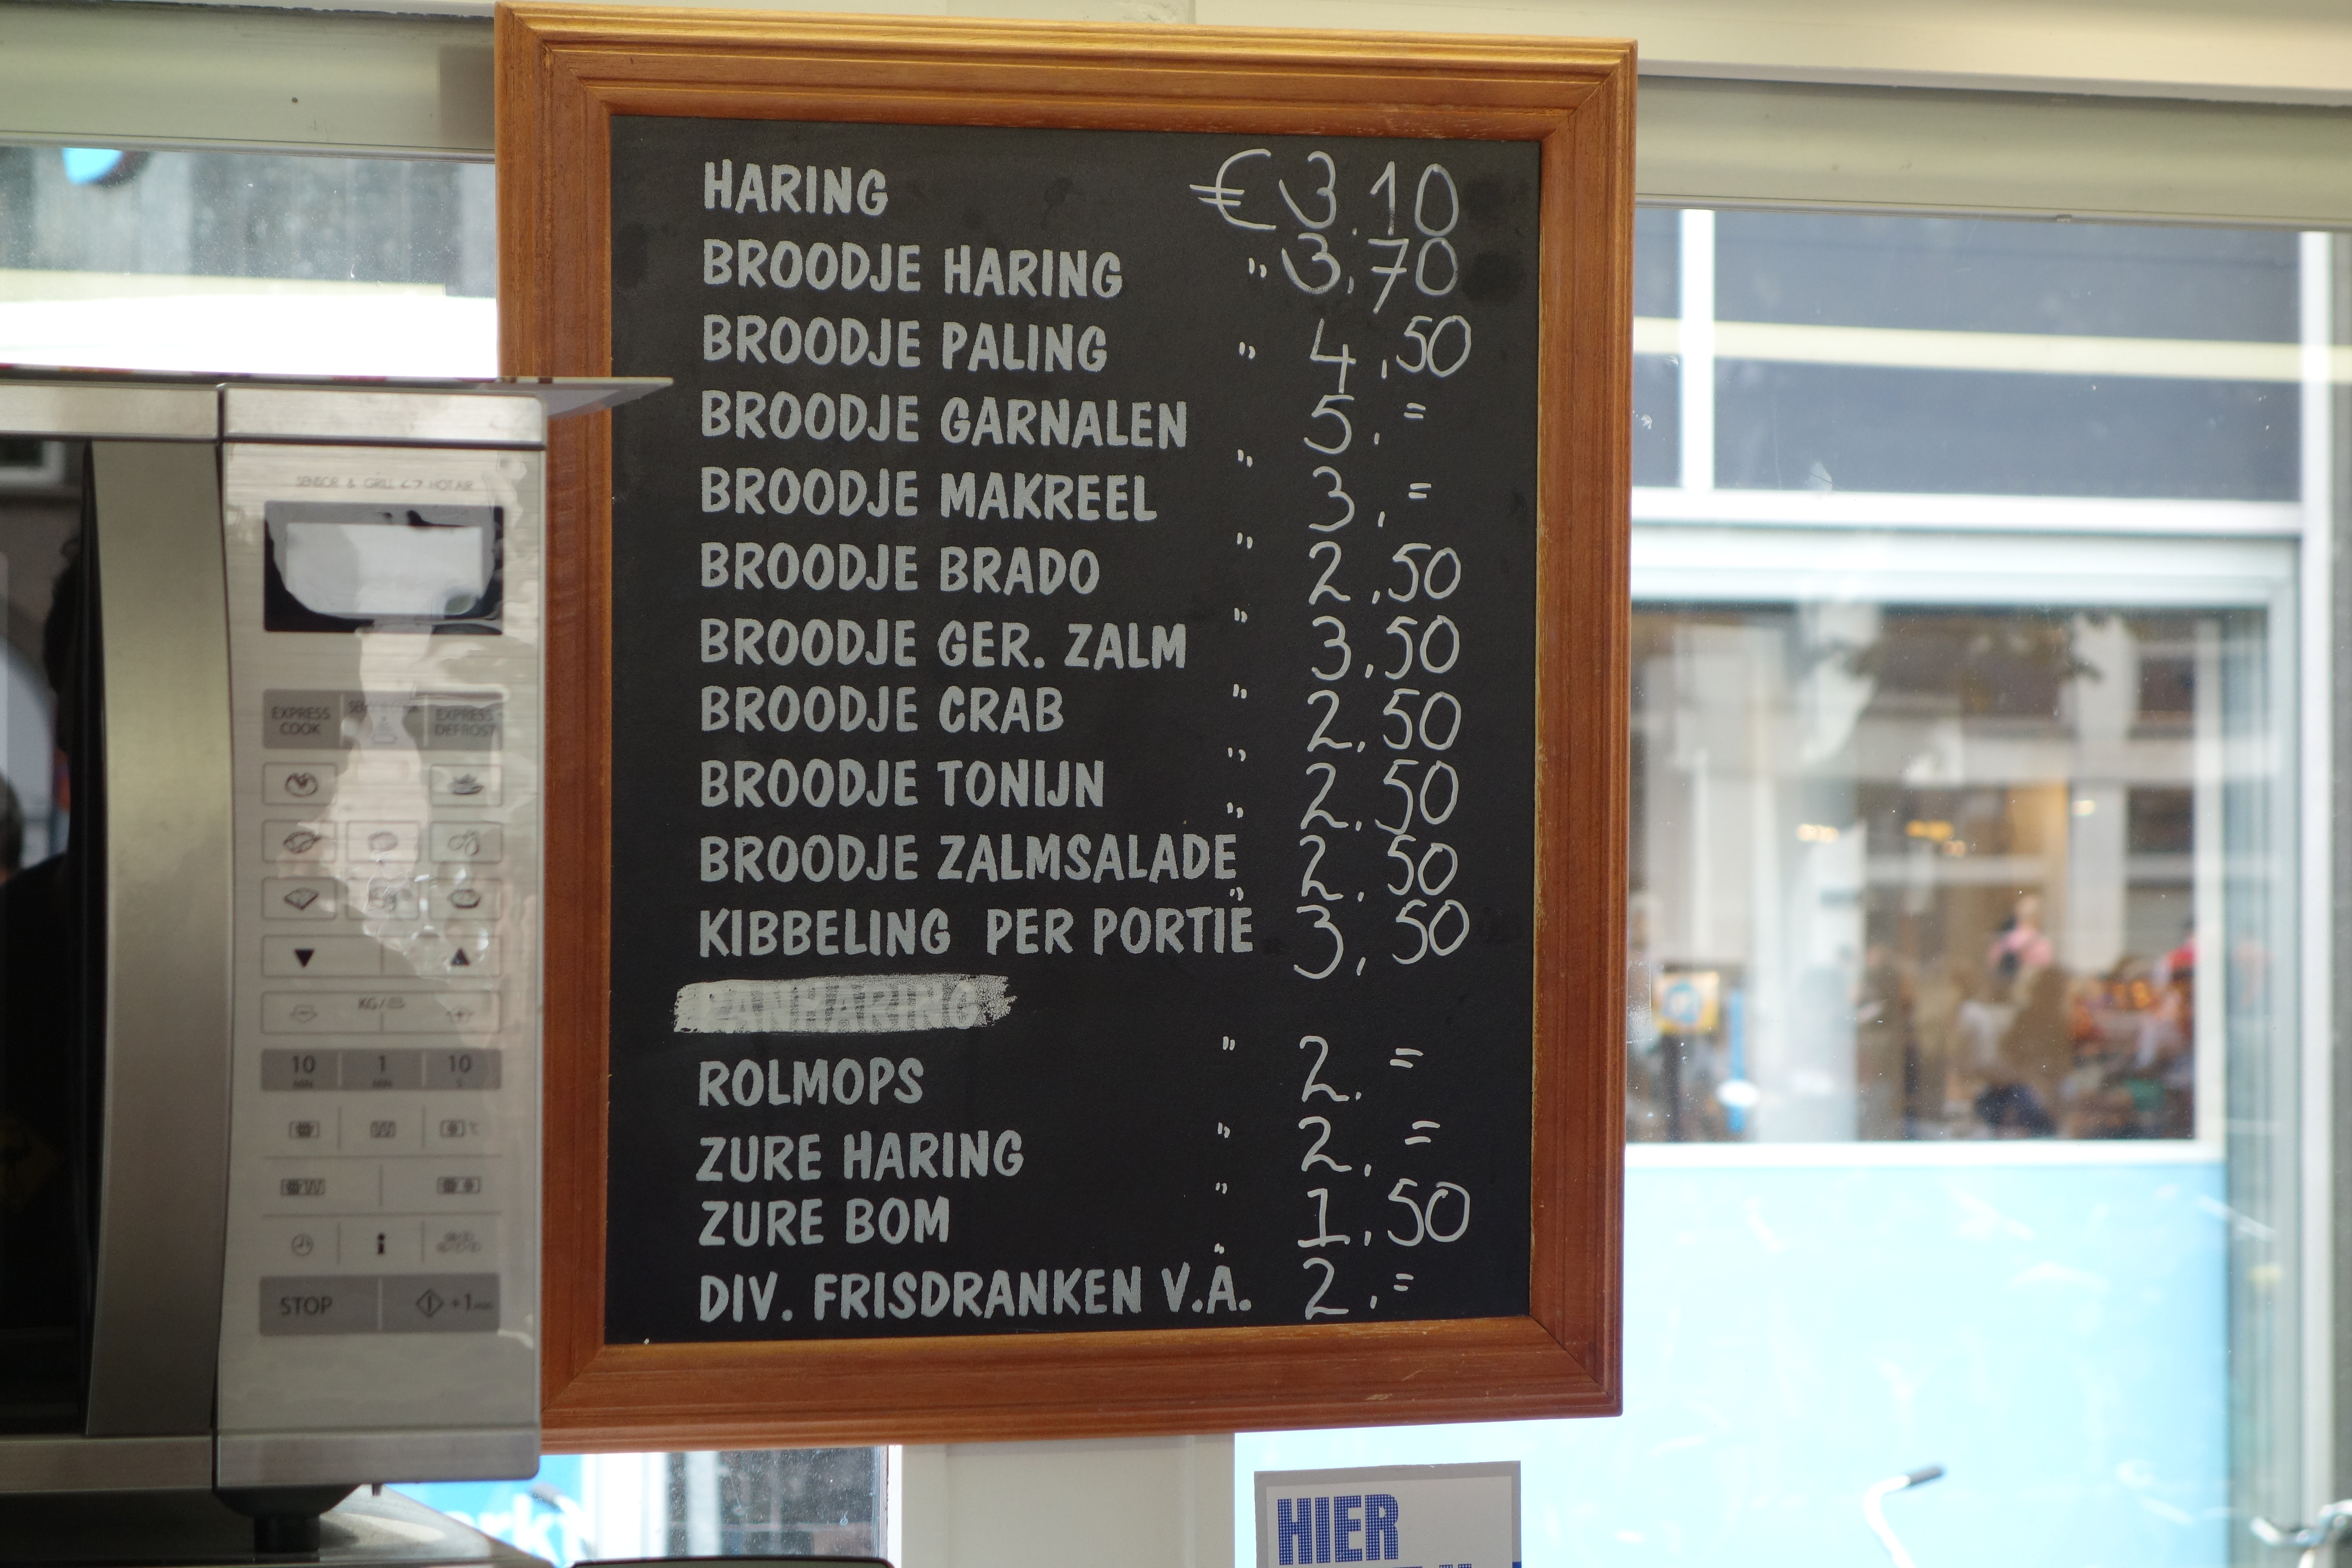 HARING € 3.10
BROODJE HARING " 3,70
BROODJE PALING " 4,50
BROODJE GARNALEN " 5,=
BROODJE MAKREEL " 3,=
BROODJE BRADO " 2,50
BROODJE GER. ZALM " 3,50
BROODJE CRAB " 2,50
BROODJE TONIJN " 2,50
BROODJE ZALMSALADE " 2,50
KIBBELING PER PORTIE 3,50
ROLMOPS " 2.=
ZURE HARING " 2,=
ZURE BOM " 1,50
DIV. FRISDRANKEN V.A. " 2,=
SENSOR & GRILL HOT AIR
EXPRESS COOK
EXPRESS DEFROST
KG/
10 MIN 1 MIN 10 S
STOP +1 MIN
HIER